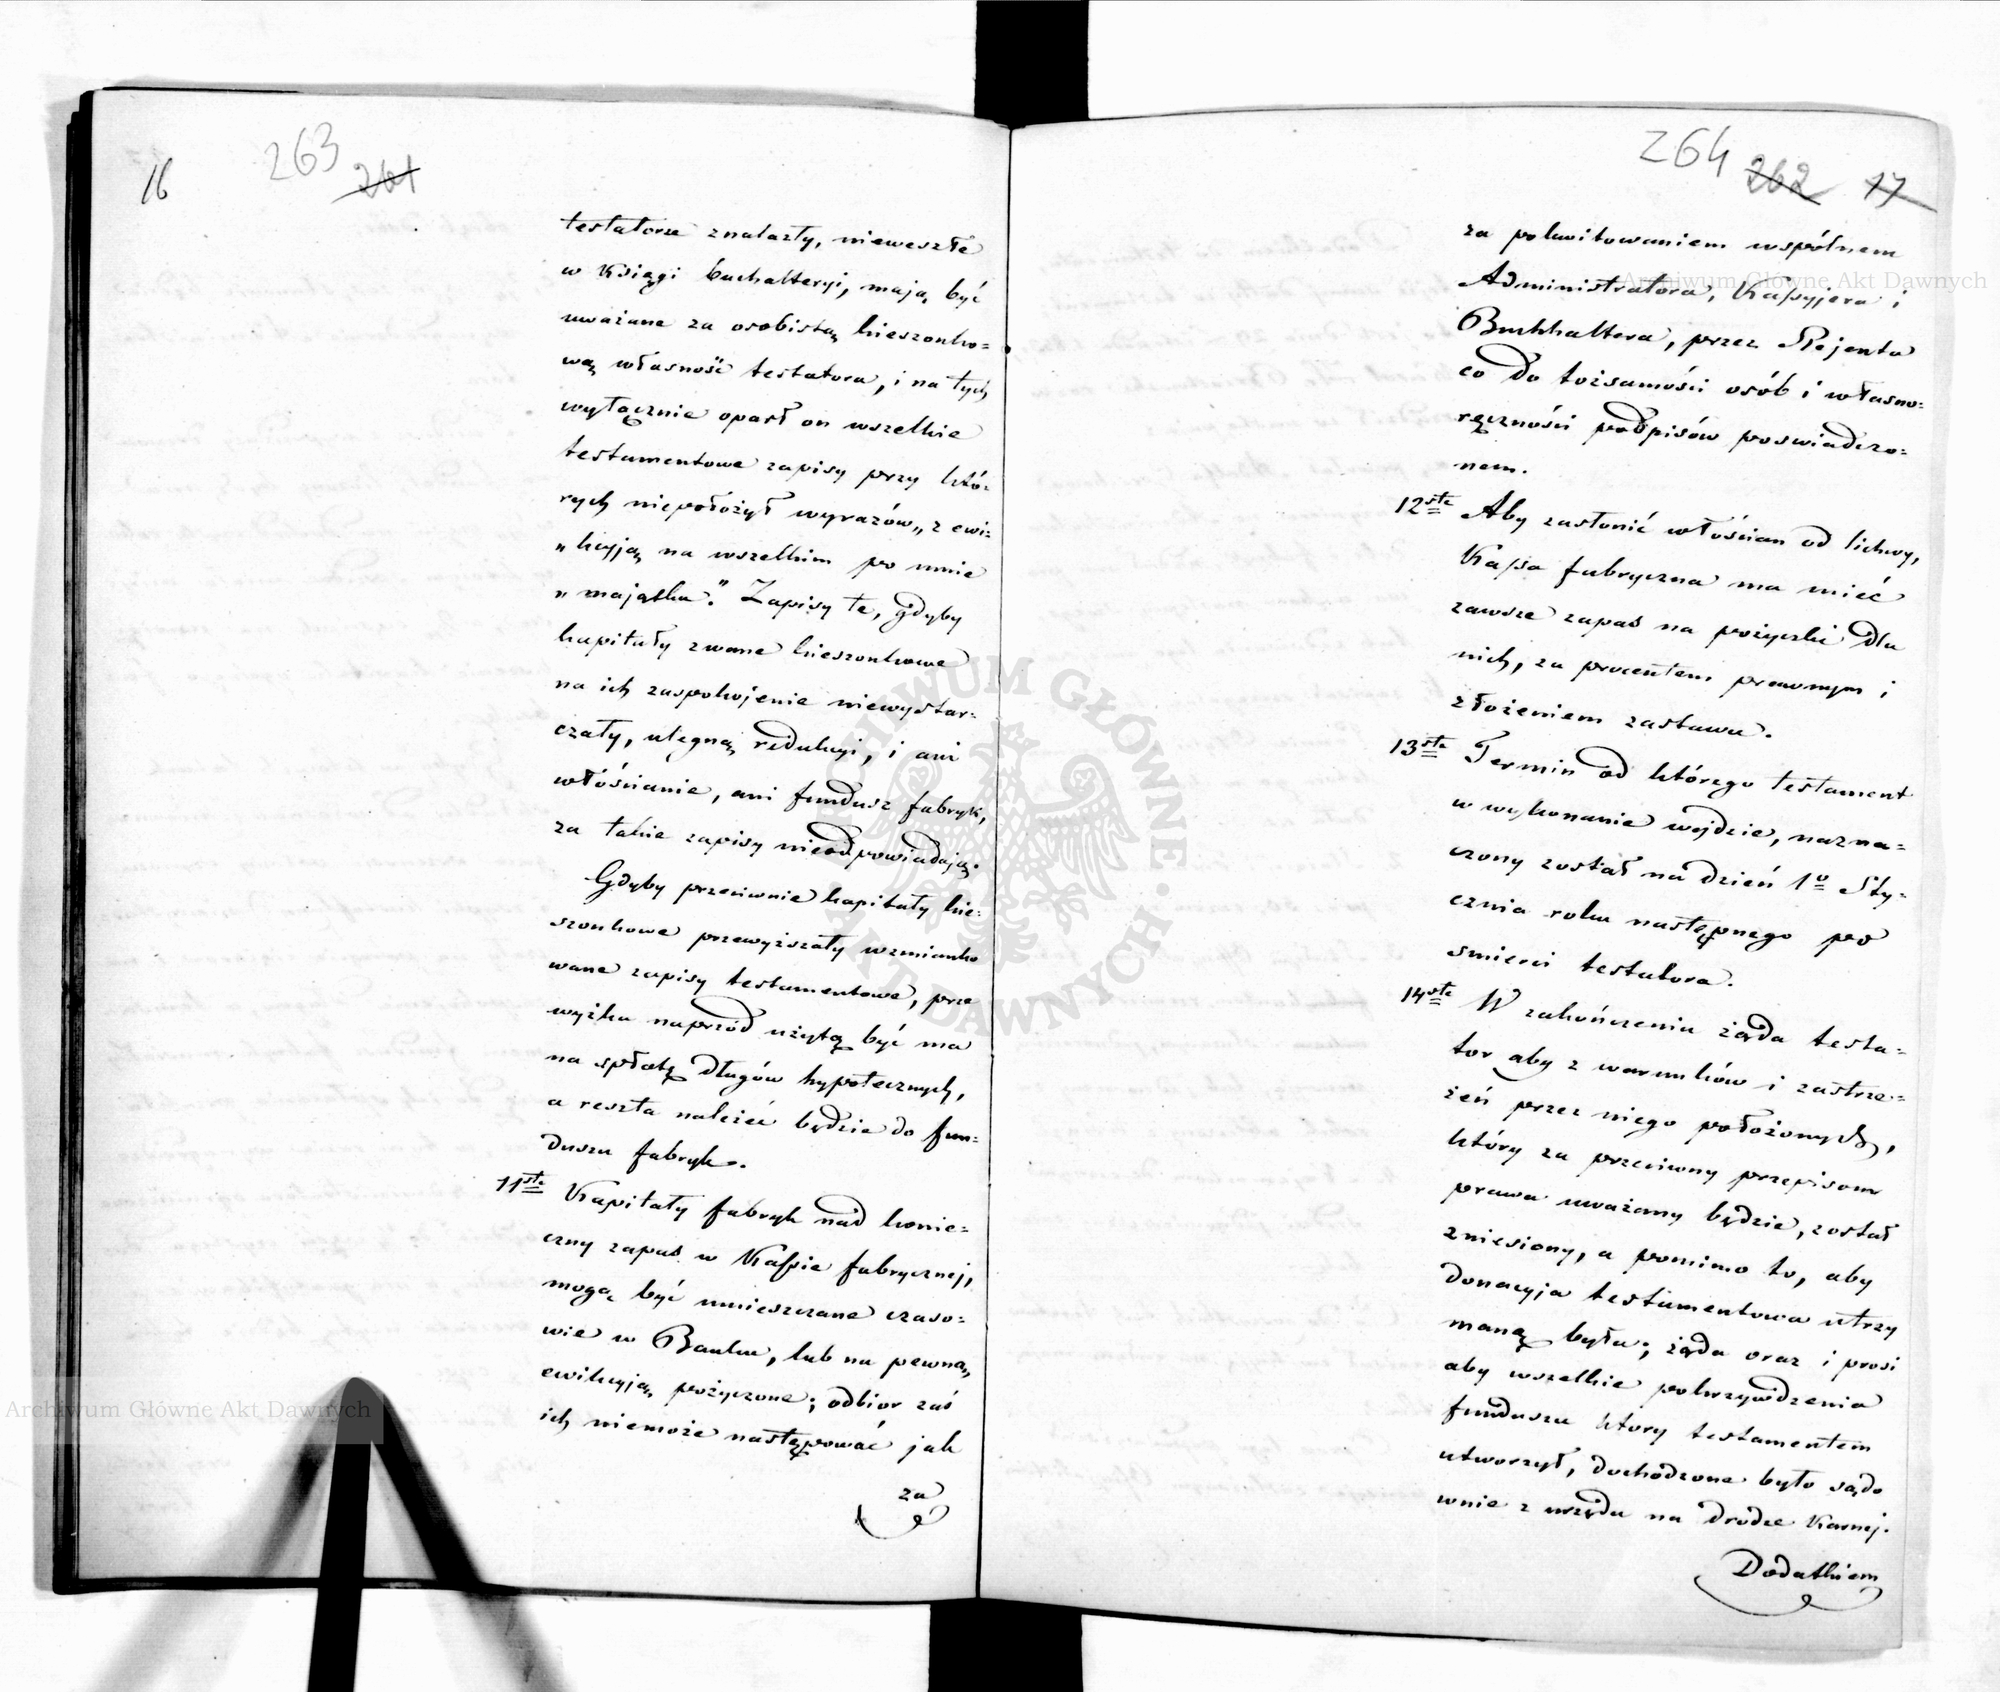 16
263
261
testatorze znalazły, nieweszłe
w Księgi buchalteryi, mają być
uważane za osobistą kieszonko=
wą własność testatora, i na tych
wyłącznie oparł on wszelkie
testamentowe zapisy przy któ=
rych niepołożył wyrazów „z ewi=
„kcyją na wszelkim po mnie
„majątku”. Zapisy te, gdyby
kapitały zwane kieszonkowe
na ich zaspokojenie niewystar=
czały, ulegną redukcyi, i ani
włóścianie, ani fundusz fabryk,
za takie zapisy nieodpowiadają.
Gdyby przeciwnie kapitały kie=
szonkowe przewyższały wzmianko
wane zapisy testamentowe, prze
wyżka naprzód użytą być ma
na spłatę długów hypotecznych,
a reszta należeć będzie do fun=
duszu fabryk.
11ste Kapitały fabryk nad konie=
czny zapas w Kassie fabrycznej,
mogą być umieszczane czaso=
wie w Banku, lub na pewną
ewikcyją pożyczone; odbior zaś
ich niemoże następować jak
za
264
262
17
za pokwitowaniem wspólnem
Administratora, Kassyjera i
Buchhaltera, przez Rejenta
co do tożsamości osób i własno=
ręczności podpisów poswiadczo=
nem.
12ste Aby zasłonić włóścian od lichwy,
Kassa fabryczna ma mieć
zawsze zapas na pożyczki dla
nich, za procentem prawnym i
złożeniem zastawu.
13ste Termin od którego testament
w wykonanie wejdzie, nazna=
czony został na dzień 1o Sty=
cznia roku następnego po
smierci testatora.
14ste W zakończeniu żąda testa=
tor aby z warunków i zastrze=
żeń przez niego położonych,
który za przeciwny przepisom
prawa uważany będzie, został
zniesiony, a pomimo to, aby
donacyja testamentowa utrzy
maną była; żąda oraz i prosi
aby wszelkie pokrzywdzenia
funduszu ktory testamentem
utworzył, dochodzone było sądo
wnie z urzędu na drodze Karnej.
Dodatkiem
Archiwum Główne Akt Dawnych
Archiwum Główne Akt Dawnych
ARCHIWUM GŁÓWNE AKT DAWNYCH